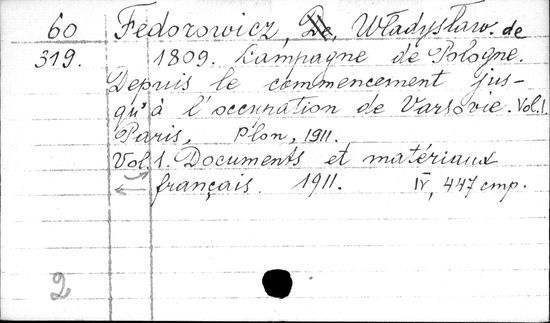 60 Fedorowicz, De, Władysław. de
319. 1809. Campagne de Pologne.
Depuis le commencement jus-
qu'à l'occupation de Varsovie. Vol.1.
Paris, Plon, 1911.
Vol. 1. Documents et matériaux
français. 1911. IV, 447 cmp.
2